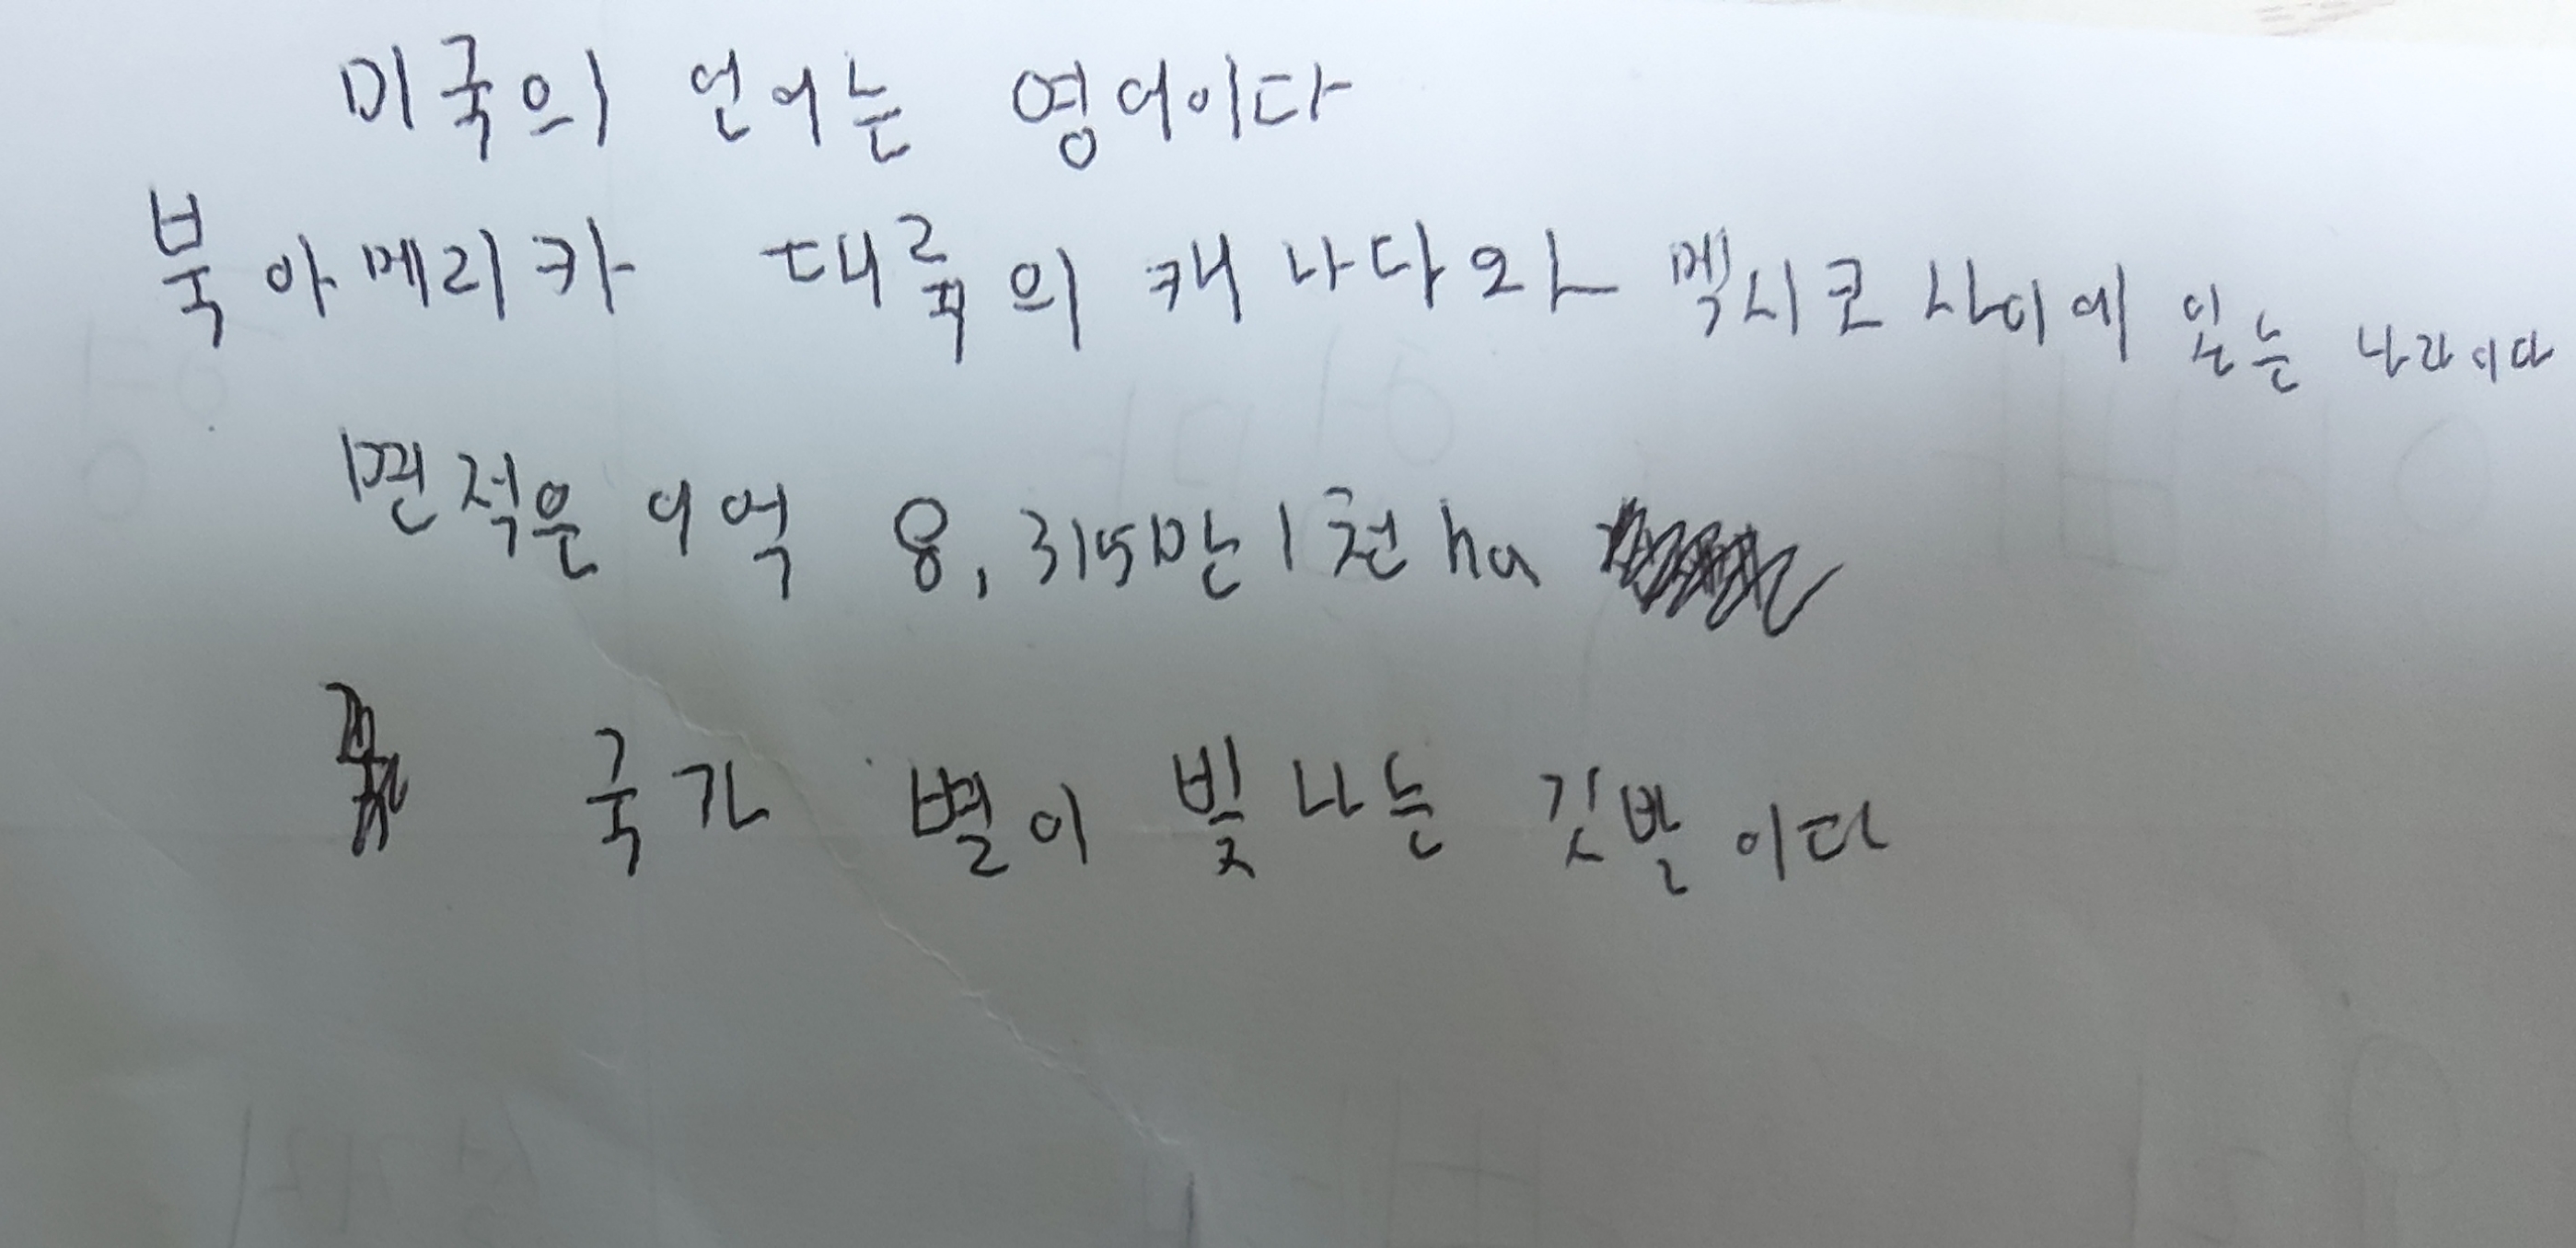 미국의 언어는 영어이다
북아메리카 대륙의 캐나다와 멕시코 사이에 있는 나라이다
면적은 9억 8,315만 1천 ha
국가 별이 빛나는 깃발이다